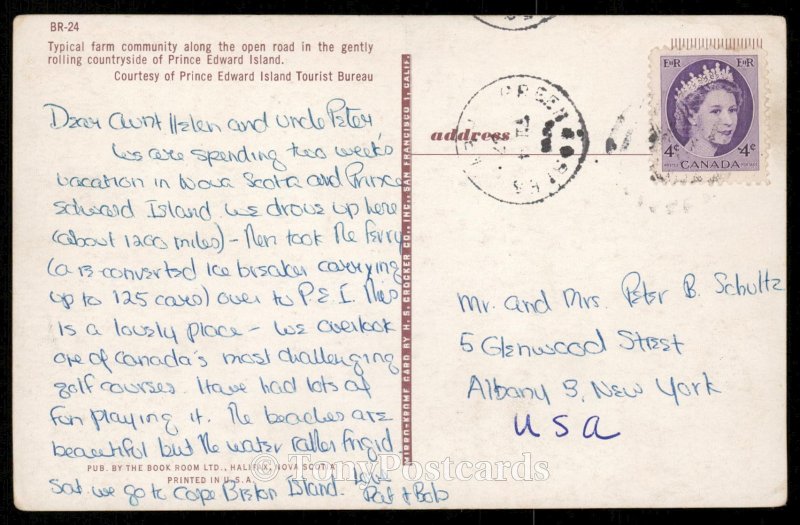 BR-24
Typical farm community along the open road in the gently
rolling countryside of Prince Edward Island.
Courtesy of Prince Edward Island Tourist Bureau
Dear Aunt Helen and Uncle Peter,
We are spending two weeks
vacation in Nova Scotia and Prince
Edward Island we drove up here
(about 1200 miles) - then took the ferry
(a re-converted ice breaker carrying
up to 125 cars) over to P.E.I. This
is a lovely place - we overlook
one of Canada's most challenging
golf courses. Have had lots of
fun playing it. The beaches are
beautiful but the water rather frigid.
Sat. we go to Cape Breton Island. Love
Pat & Bob
PUB. BY THE BOOK ROOM LTD., HALIFAX, NOVA SCOTIA
PRINTED IN U.S.A.
MIRRO-KROME CARD BY H. S. CROCKER CO., INC., SAN FRANCISCO 1, CALIF.
address
GREEN
E II R E II R
4¢ 4¢
CANADA
Mr. and Mrs. Peter B. Schultz
5 Glenwood Street
Albany 3, New York
USA
© TonyPostcards